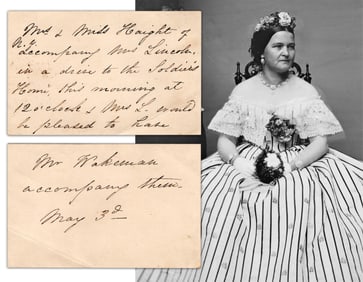 Mrs & Miss Haight of
N.Y.
accompany Mrs Lincoln,
in a drive to the Soldier's
Home, this morning at
12 o'clock & Mrs L. would
be pleased to have
Mr Wakeman
accompany them.
May 3d